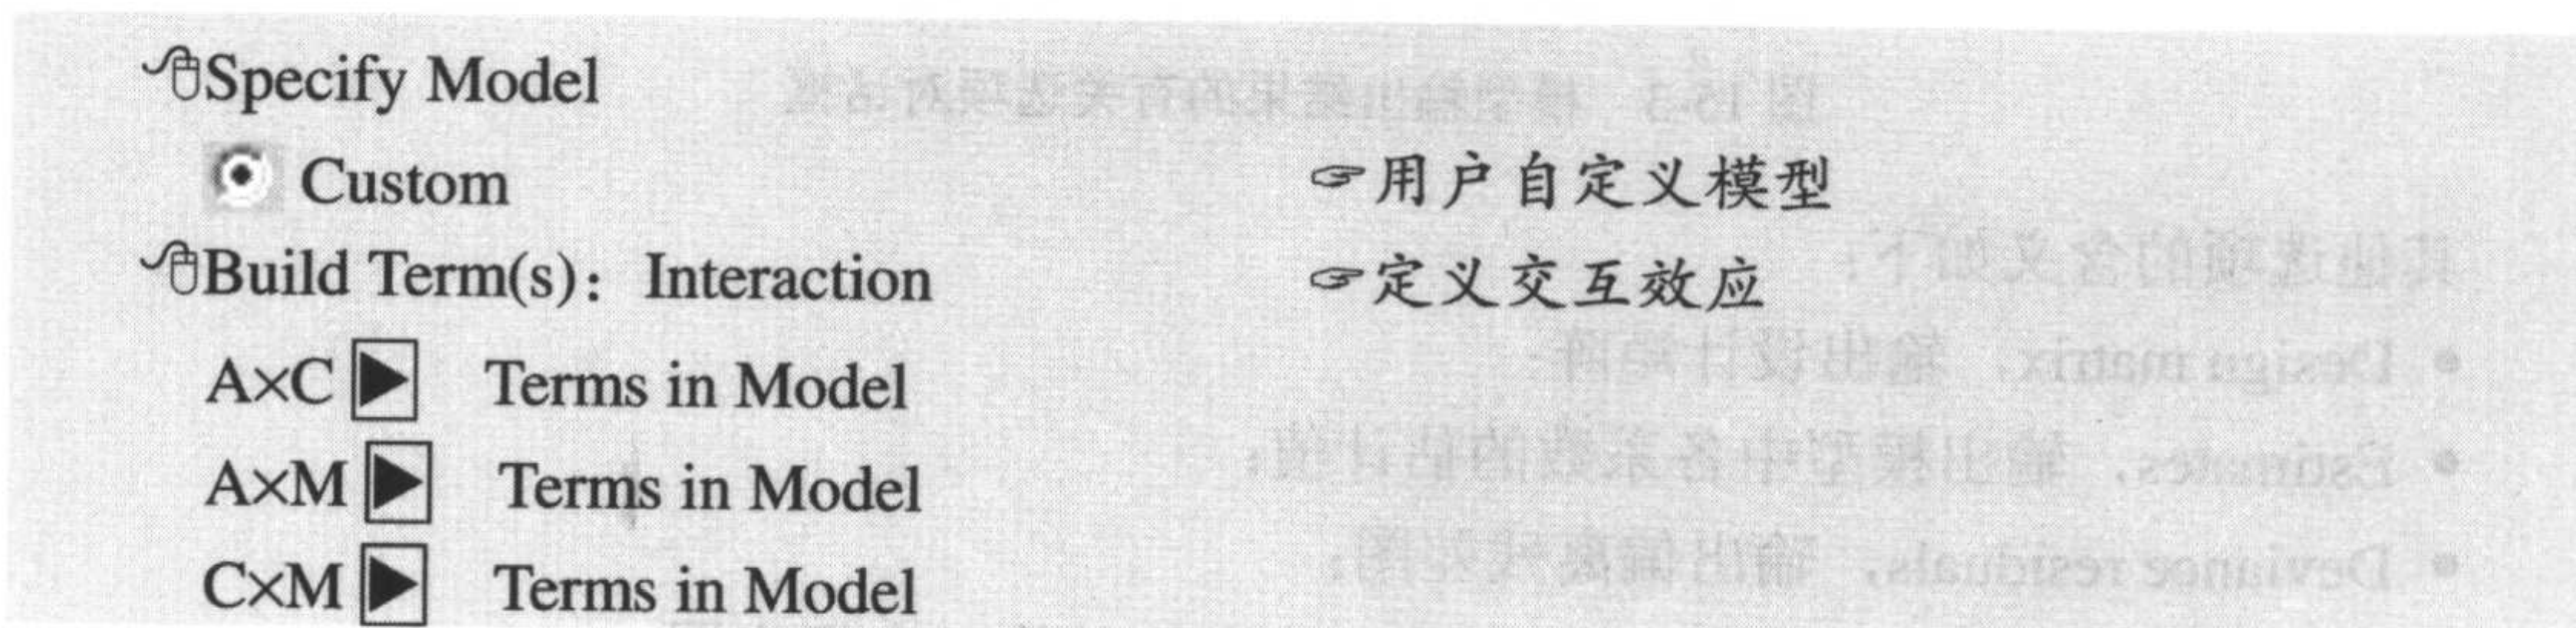 Specify Model
Custom ☞用户自定义模型
Build Term(s)： Interaction ☞定义交互效应
A×C ▶ Terms in Model
A×M ▶ Terms in Model
C×M ▶ Terms in Model